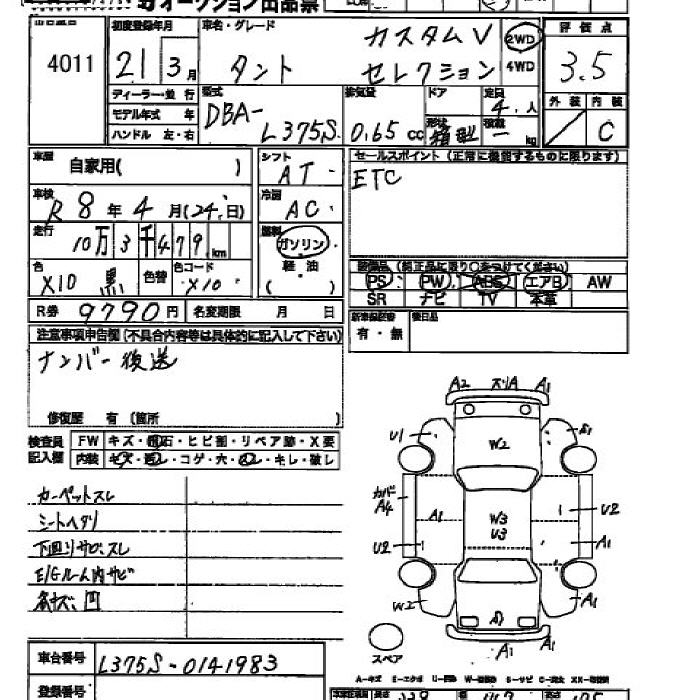 オークション出品票
4011
初度登録年月
21 3月
車名・グレード
タント
カスタムV
セレクション
2WD
4WD
評価点
3.5
ディーラー・並行
モデル年式 年
ハンドル 左・右
型式
DBA-
L375S
排気量
0.65 cc
ドア
形状
箱型
定員
4.人
積載
kg
外装 内装
C
車歴
自家用( )
シフト
AT
セールスポイント(正常に機能するものに限ります)
ETC
車検
R 8 年 4 月(24.日)
冷房
AC
走行
10万3千479 km
燃料
ガソリン
軽・油
( )
色
X10 黒
色替
色コード
X10
装備品(純正品に限り○をつけてください)
PS PW ABS エアB AW
SR ナビ TV 本革
R券 9790円
名変期限 月 日
新車保証書
有・無
後日品
注意事項申告欄(不具合内容等は具体的に記入して下さい)
ナンバー後送
修復歴 有(箇所 )
検査員
記入欄
FW キズ・飛石・ヒビ割・リペア跡・X要
内装 キズ・汚レ・コゲ・穴・スレ・キレ・破レ
カーペットスレ
シートヘタリ
下回りサビ、スレ
E/Gルーム内サビ
A2 スリA A1
U1
W2
カバー
A4
A1
W3
U3
U2
U2
A1
W2
A1
A1 A1
スペア
車台番号
L375S-0141983
登録番号